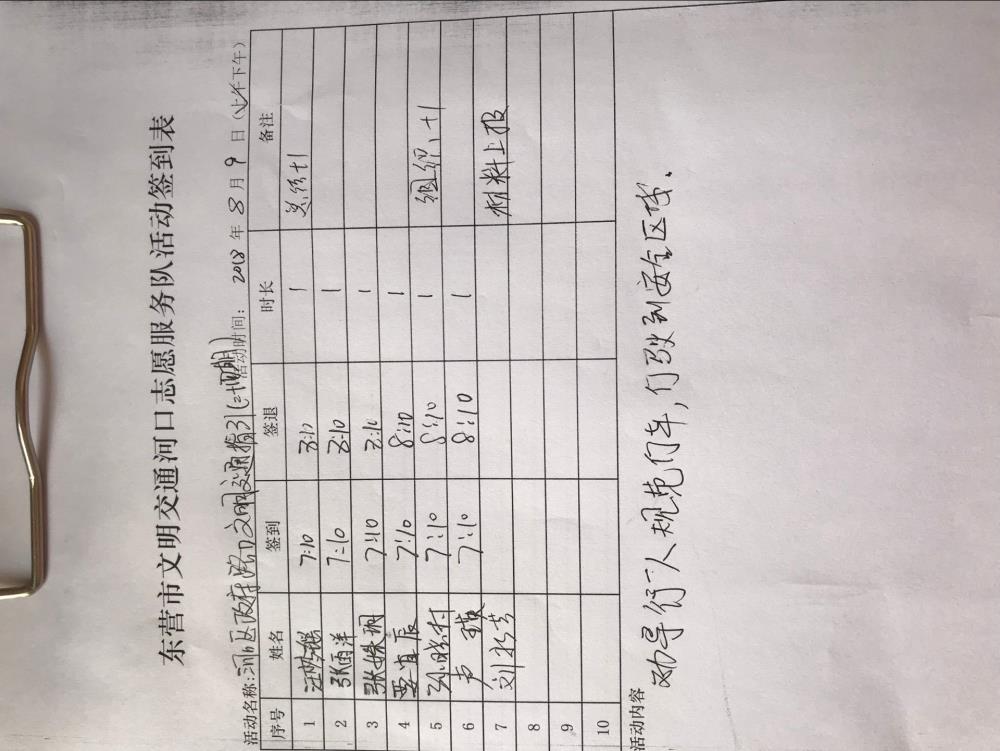 东营市文明交通河口志愿服务队活动签到表
活动名称:河口区政府路口文明交通指引(二十四期) 活动时间: 2018 年 8 月 9 日 (上午下午)
序号 姓名 签到 签退 时长 备注
1 7:10 8:10 1 总结+1
2 张雨洋 7:10 8:10 1
3 张姝玥 7:10 8:10 1
4 7:10 8:10 1
5 孙晓村 7:10 8:10 1 组织+1
6 7:10 8:10 1
7 材料上报
8
9
10
活动内容
劝导行人规范行车,行驶到安全区域.